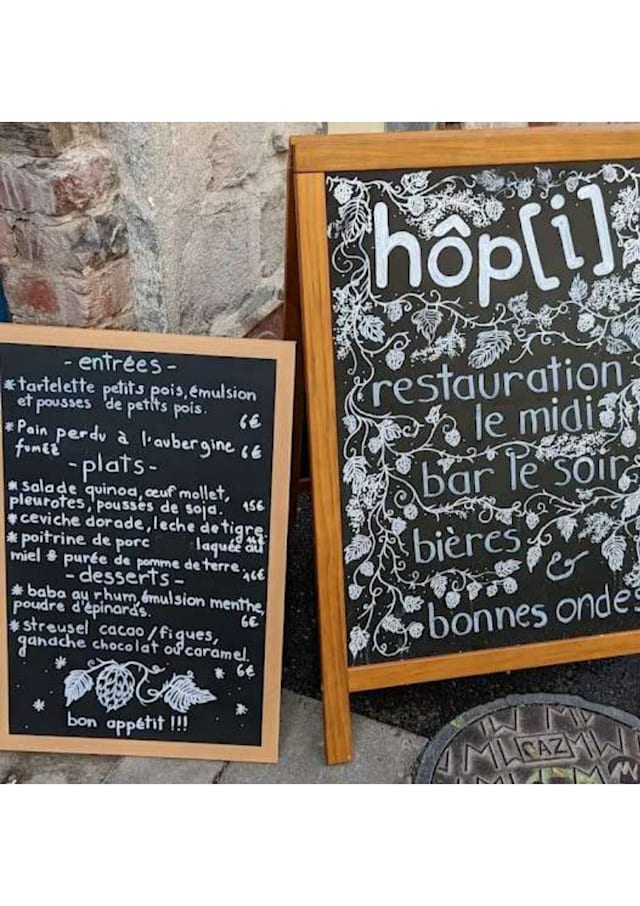 - entrées -
* tartelette petits pois, émulsion
et pousses de petits pois.
6€
* Pain perdu à l'aubergine
fumée 6€
- plats -
* salade quinoa, œuf mollet,
pleurotes, pousses de soja. 15€
* ceviche dorade, leche de tigre.
* poitrine de porc laquée au
miel & purée de pomme de terre. 16€
- desserts -
* baba au rhum, émulsion menthe,
poudre d'épinards. 6€
* streusel cacao/figues,
ganache chocolat ou caramel.
6€
bon appétit !!!
hôp[i]
restauration
le midi
bar le soir
bières
&
bonnes onde
GAZ